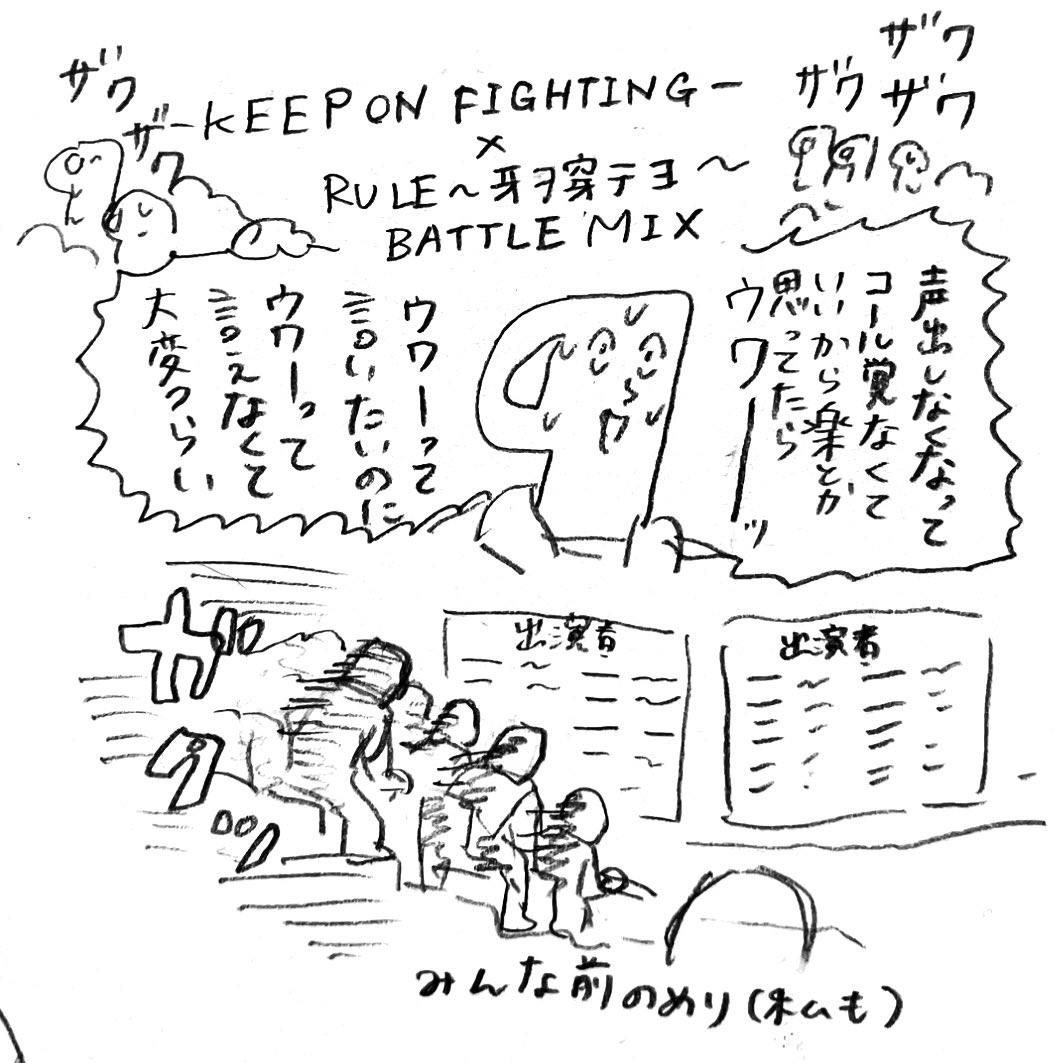 ザワ
ザワ
ザワ
ザワ
ザワ
-KEEP ON FIGHTING-
×
RULE~牙ヲ穿テヨ~
BATTLE MIX
声出しなくなって
コール覚なくて
いいから楽とか
思ってたら
ウワーーーッ
ウワーって
言いたいのに
ウワーって
言えなくて
大変つらい
ザッ
出演者
出演者
みんな前のめり(私も)